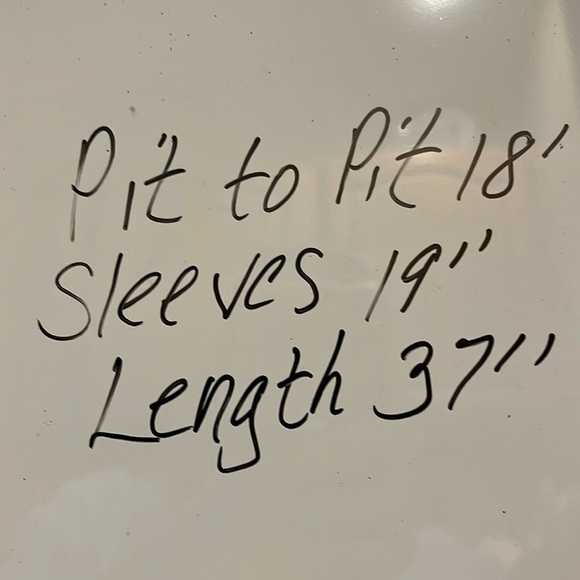 Pit to Pit 18'
Sleeves 19"
Length 37"